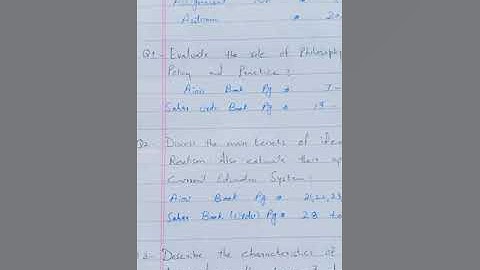 Assignment
Autumn * 20
Q1- Evaluate the role of Philosophy
Policy and Practice?
Aiou Book Pg * 7-
Sahar urdu Book Pg * 19-
Discuss the main tenets of
Realism. Also evaluate their ap
Current Education System.
Aiou Book Pg * 21,22,23,
Sahar Book (Urdu) Pg * 28 to
Describe the characteristics of